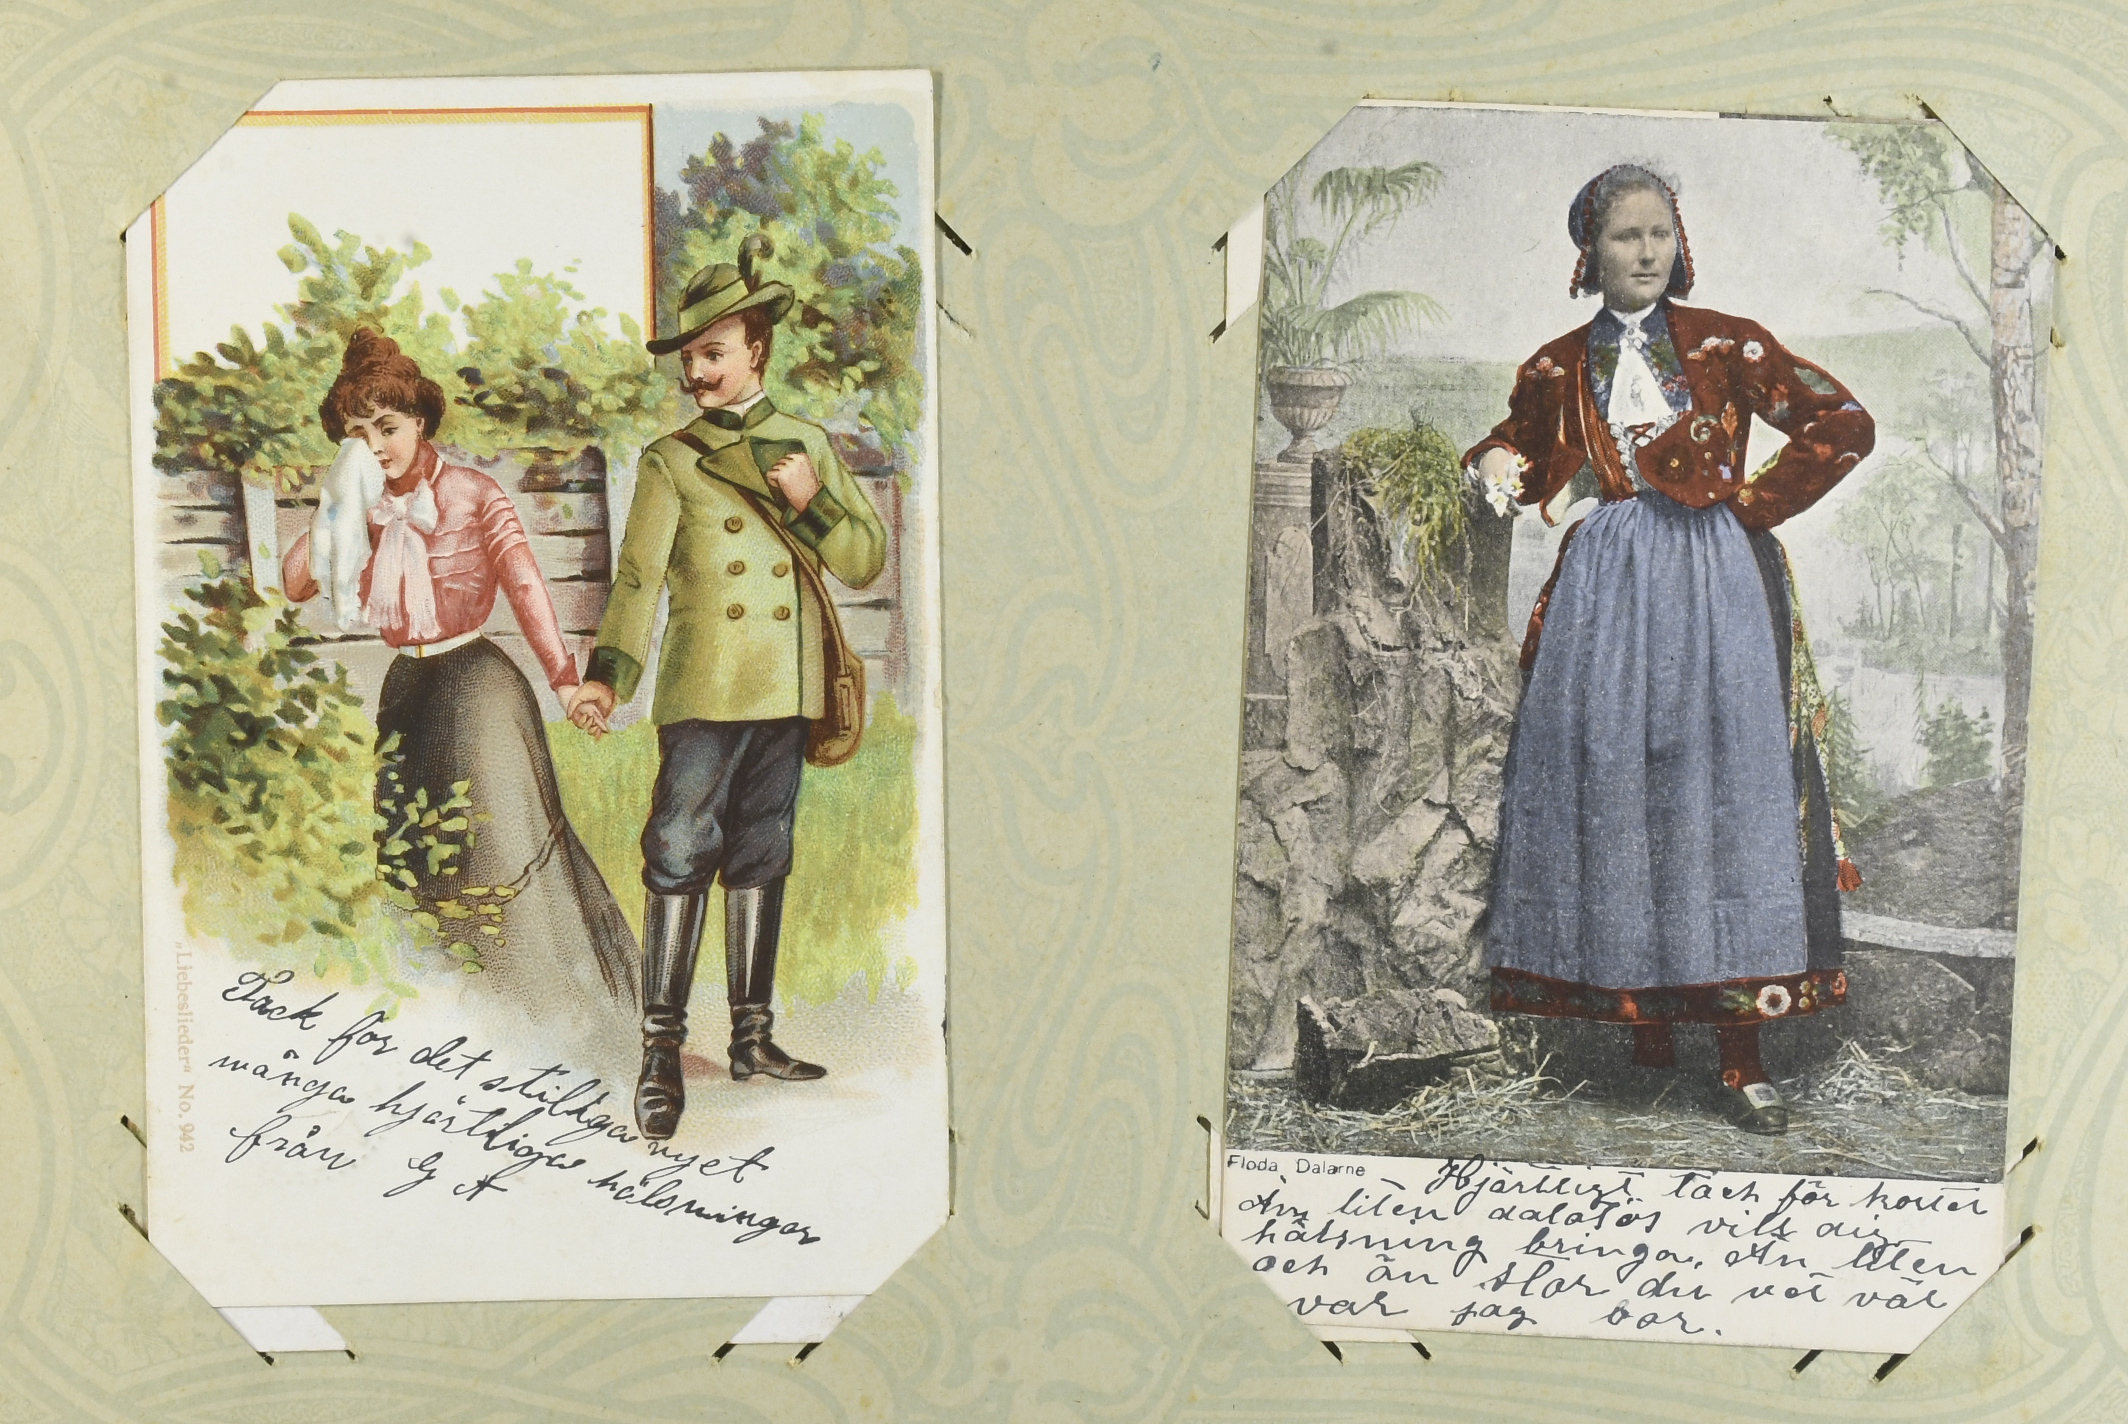 „Liebeslieder“ No. 942
Tack for det stiliga vyet
många hjärtliga hälsningar
från G A
Floda, Dalarne
Hjärtligt tack för kortet
Än liten dalatös vill dig
hälsning bringa, än liten
och än stor du vet väl
var jag bor.